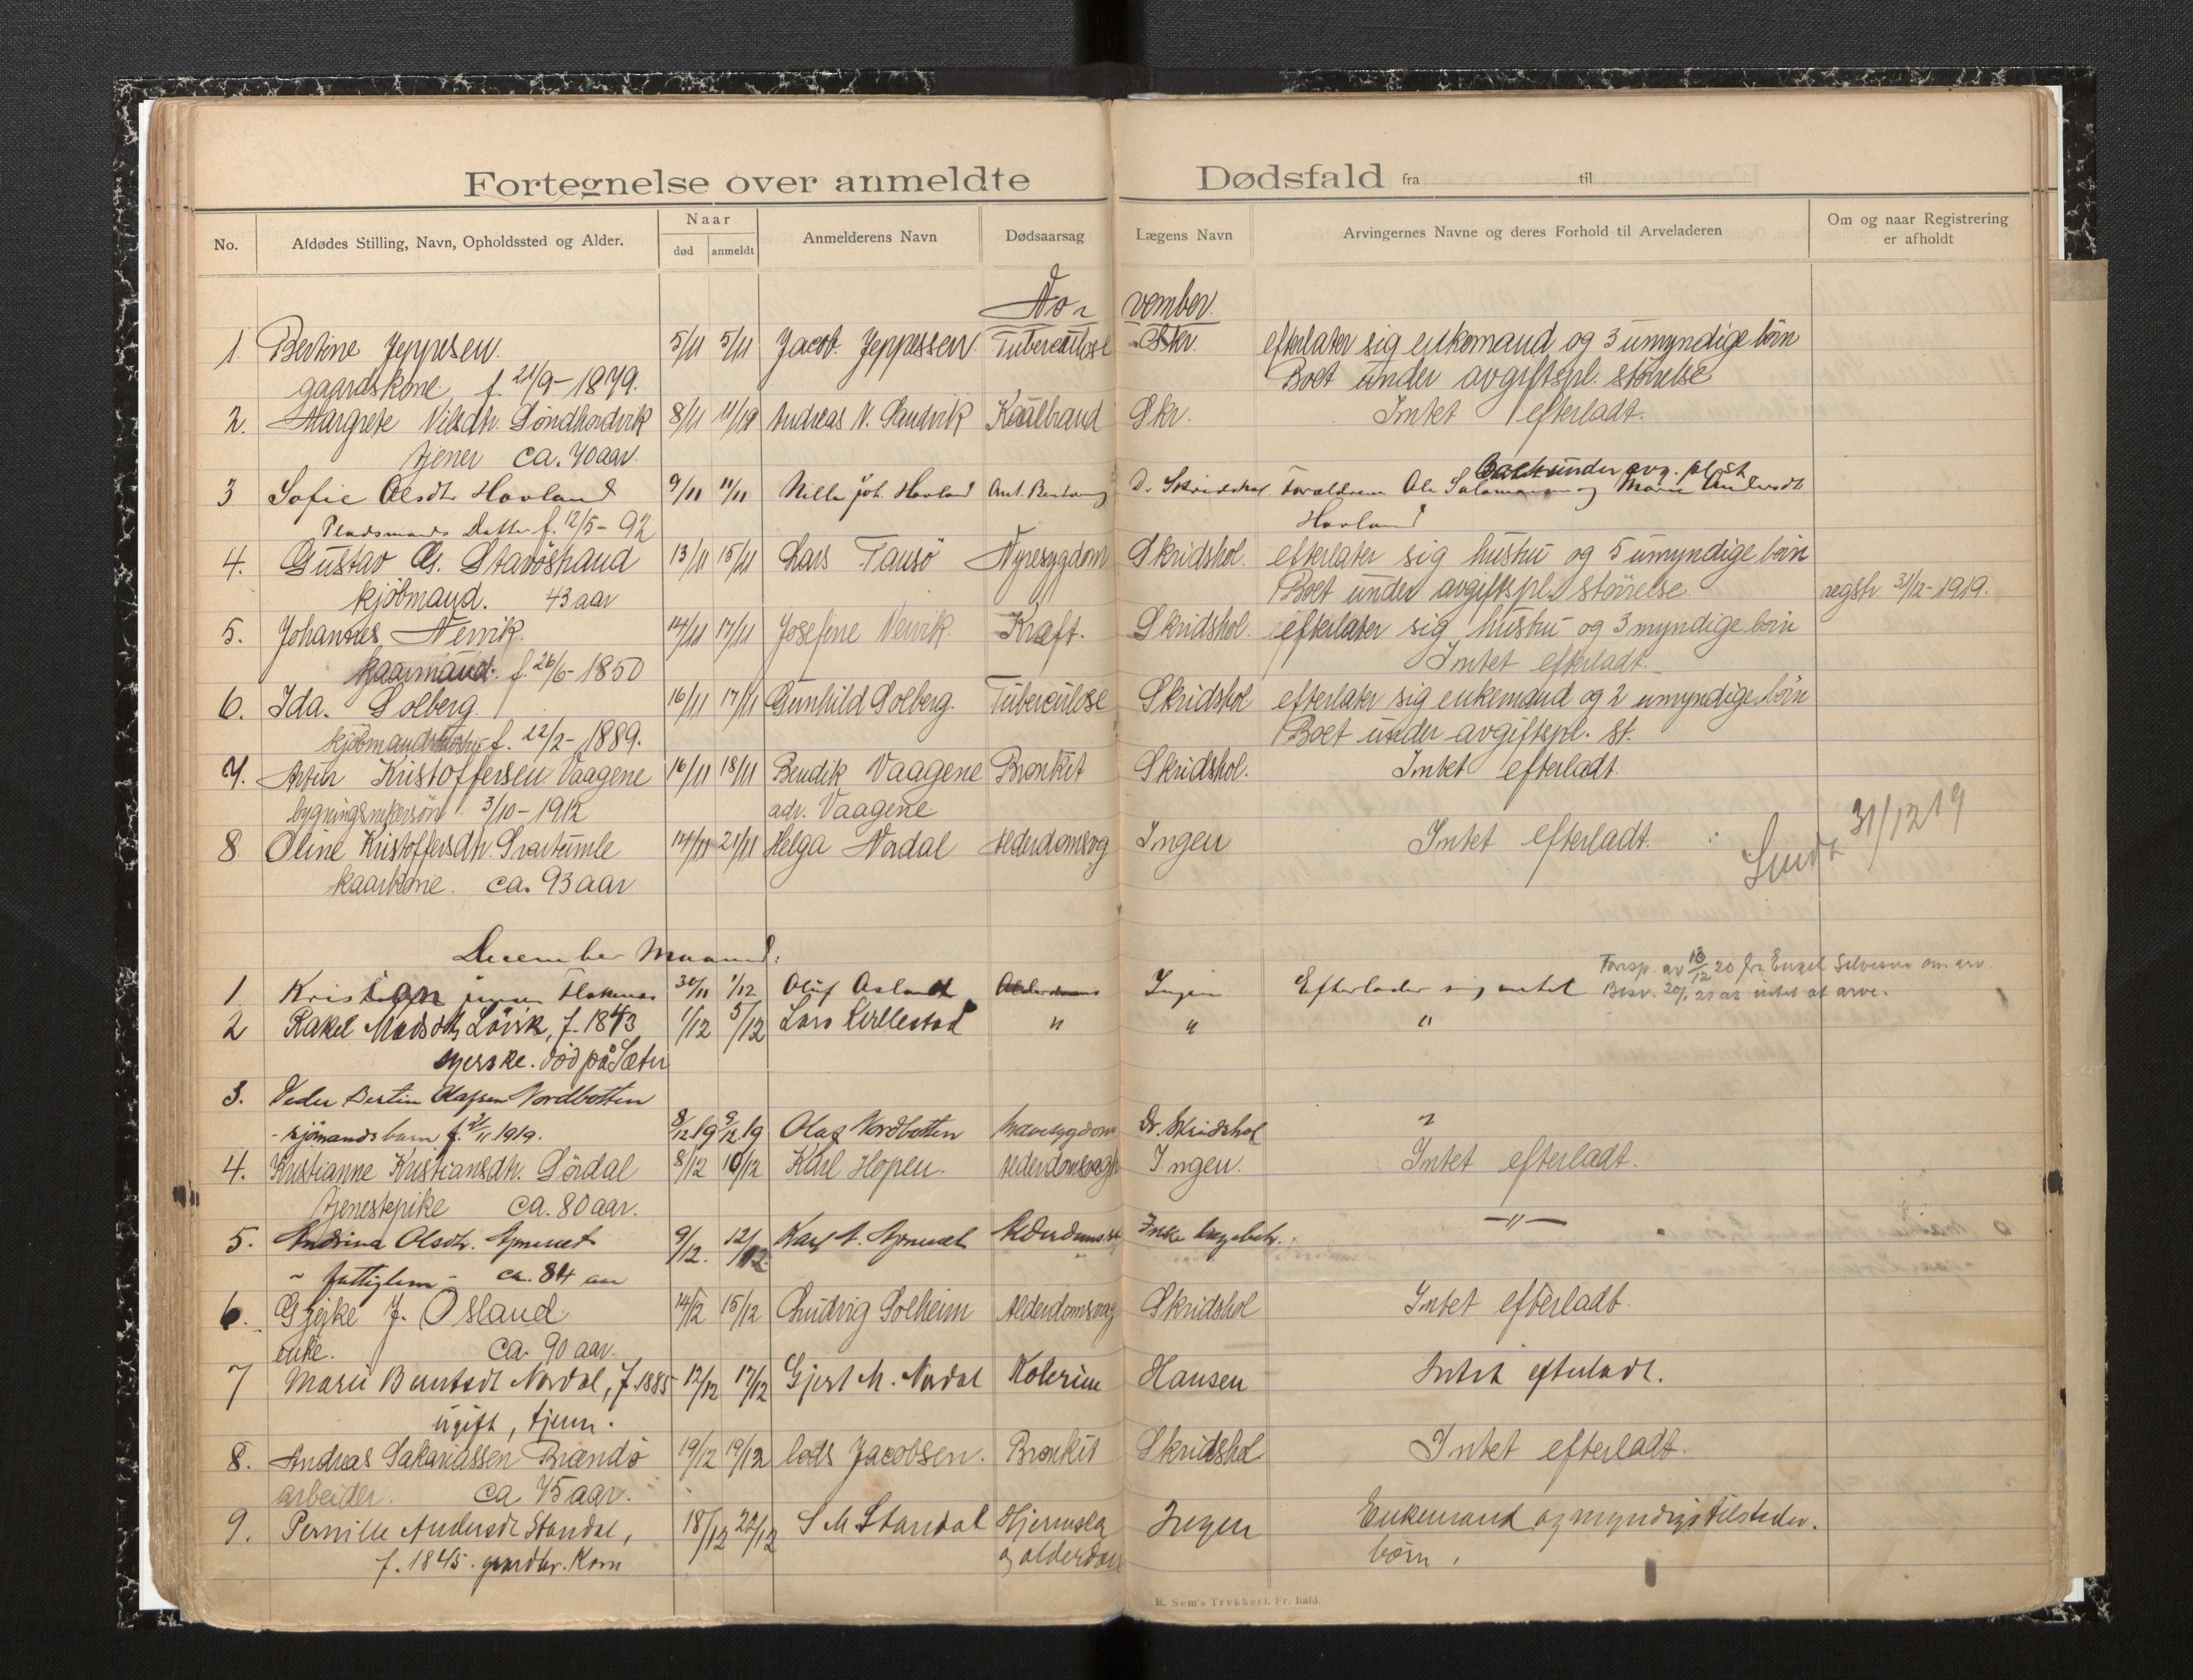 Fortegnelse over anmeldte Dødsfald fra til
No. Afdødes Stilling, Navn, Opholdssted og Alder. Naar Anmelderens Navn Dødsaarsag Lægens Navn Arvingernes Navne og deres Forhold til Arveladeren Om og naar Registrering
død anmeldt er afholdt
No- vember.
1. Bertine Jeppesen. 5/11 5/11 Jacob Jeppessen Tuberculose Skr. efterlater sig enkemand og 3 umyndige børn
gaardskone f. 21/9-1879. Boet under avgiftspl. størrelse
2. Margrete Nilsdtr. Søndhordvik 8/11 11/19 Andreas N. Sandvik Kaalbrand Skr. Intet efterladt.
tjener ca. 70 aar.
Boet under avg. pl. st
3 Sofie Olsdtr Hovland 9/11 11/11 Nille Joh. Hovland D. Skridshol Forældrene Ole Salomonsen og Marie Andersdt
Pladsmands Datter f. 12/5-92 Hovland
4. Gustav G. Stavøstrand 13/11 15/11 Lars Tansø Nyresygdom Skridshol. efterlater sig hustru og 5 umyndige børn
kjøbmand. 43 aar Boet under avgiftspl. størrelse. regstr. 31/12-1919.
5. Johannes Nervik. 14/11 17/11 Josefine Nervik. Kræft. Skridshol. efterlater sig hustru og 3 myndige børn
kaarmand. f. 26/6-1850 Intet efterladt.
6. Ida. Solberg. 16/11 17/11 Gunhild Solberg. Tuberculose Skridshol efterlater sig enkemand og 2 umyndige børn
kjøbmandshustru f. 22/2-1889. Boet under avgiftspl. st.
7. Kristoffersen Vaagene 16/11 18/11 Bendik Vaagene Bronkit Skridshol. Intet efterladt.
3/10-1912 adr. Vaagene
8 Oline Kristoffersdtr. Svartumle 14/11 21/11 Helga Nordal Alderdomsvag Ingen Intet efterladt. 31/12 19
kaarkone. ca. 93 aar
December Maaned:
1. Kristian Jensen Flekenes 30/11 1/12 Oluf Asland Alderdoms Ingen Efterlader sig intet Foresp. av 18/12 20 fra Engel om arv
Besv. 20/1 21 at intet at arve.
2 Rakel Madsdtr Løvik, f. 1843 1/12 5/12 Lars Kirllestad " " "
syerske. død på Sæter
3. Peder Bertin Olafsen Nordbotten
- sjømandsbarn f. 1919. 8/12 19 9/12 19 Olaf Nordbotten Mavesygdom Dr. Skridshol
4. Kristianne Kristiansdtr. Sørdal 8/12 10/12 Karl Hopen. Alderdomsvagh Ingen. Intet efterladt.
tjenestepike ca. 80 aar.
5. Andrina Olsdtr. 9/12. 12/12. Alderdoms Ikke lægebeh. -"-
- fattiglem - ca. 84 aar
6. Gjerke J. Osland 14/12 15/12 Ludvig Solheim Alderdomsvag Skridshol Intet efterladt.
enke. ca. 90 aar.
7 Marie Berntsdt Nordal, f. 1885 12/12 17/12 Gjert M. Nordal Kolerine Hansen Intet efterladt.
ugift, tjener.
8. Andreas Sakariassen Brandø 19/12 19/12 lods Jacobsen. Bronkit Skridshol Intet efterladt.
arbeider. ca. 75 aar.
9. Pernille Andersdt Standal, 18/12 22/12 S M Standal Hjerneslag Ingen Enkemand og myndige tilsteder.
f. 1845. gaardbr. Kone og alderdom børn.
E. Sem's Trykkeri. Fr. hald.